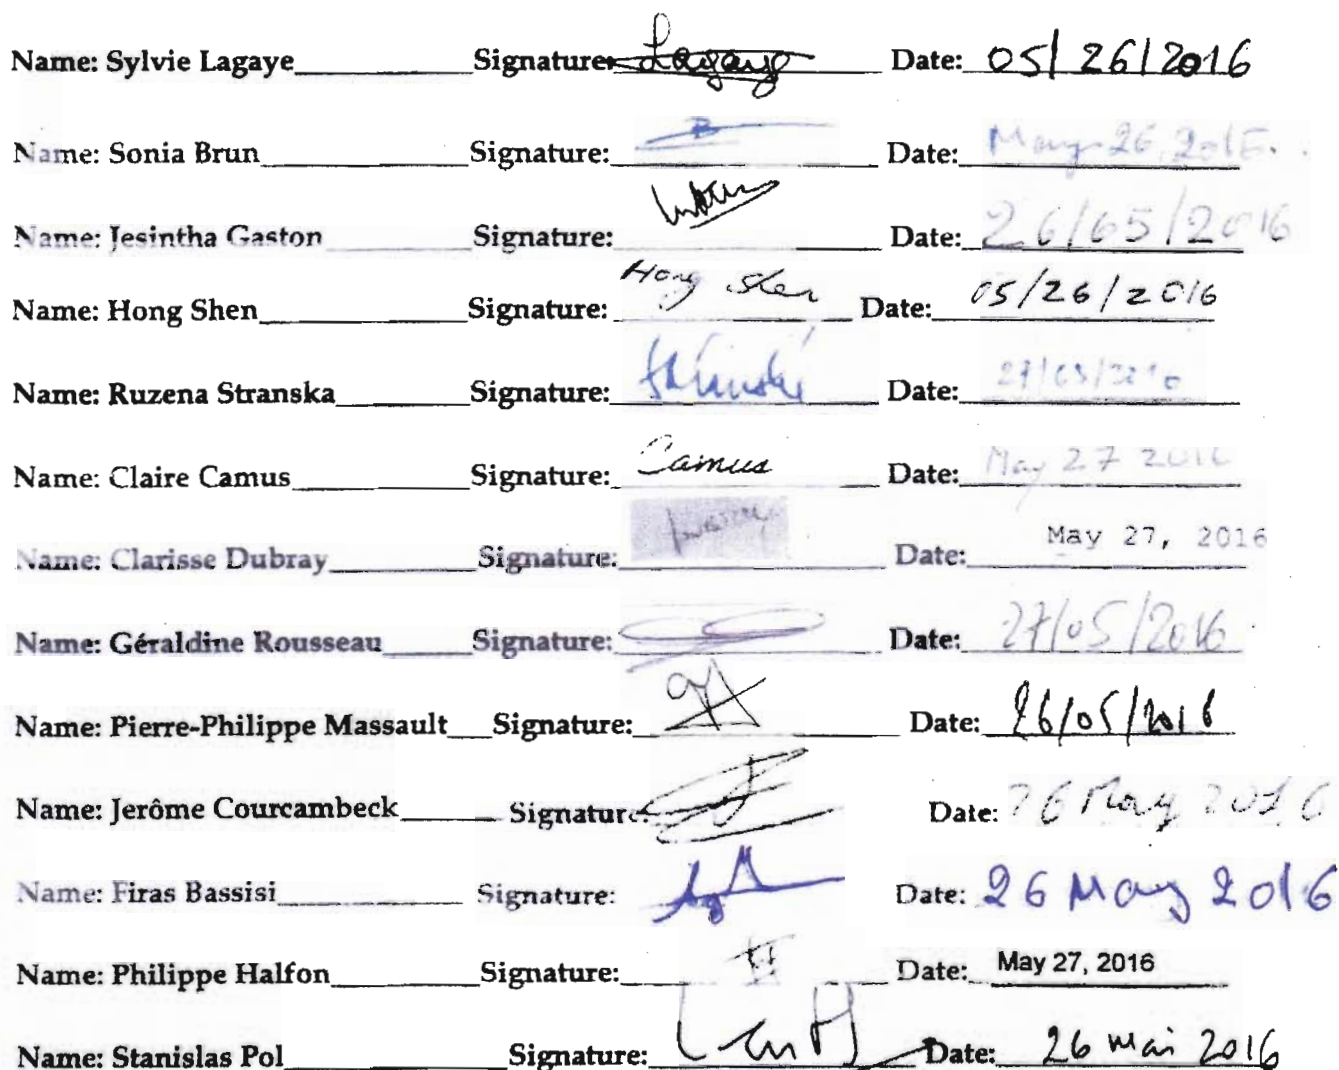 Name: Sylvie Lagaye Signature: Lagaye Date: 05/26/2016
Name: Sonia Brun Signature: Date: May 26, 2015.
Name: Jesintha Gaston Signature: Date: 26/05/2016
Name: Hong Shen Signature: Hong Shen Date: 05/26/2016
Name: Ruzena Stranska Signature: Stránská Date:
Name: Claire Camus Signature: Camus Date: May 27 2016
Name: Clarisse Dubray Signature: Date: May 27, 2016
Name: Géraldine Rousseau Signature: Date: 27/05/2016
Name: Pierre-Philippe Massault Signature: Date: 26/05/2016
Name: Jerôme Courcambeck Signature: Date: 26 May 2016
Name: Firas Bassisi Signature: Date: 26 May 2016
Name: Philippe Halfon Signature: Date: May 27, 2016
Name: Stanislas Pol Signature: Date: 26 mai 2016